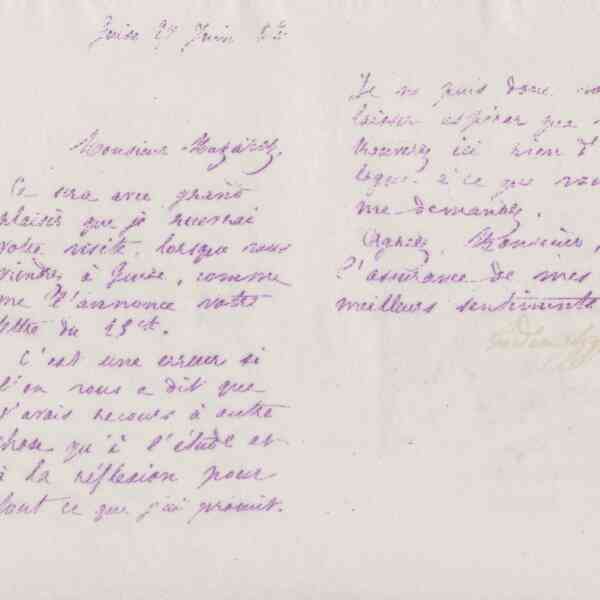 Guise 27 Juin 82
Monsieur Nazaret,
Ce sera avec grand
plaisir que je recevrai
votre visite lorsque vous
viendrez à Guise, comme
me l'annonce votre
lettre du 25 ct.
C'est une erreur si
l'on vous a dit que
j'avais recours à autre
chose qu'à l'étude et
à la réflexion pour
tout ce que j'ai produit.
Je ne puis donc vous
laisser espérer que
trouverez ici rien d'
logue à ce que vous
me demandez.
Agréez, Monsieur,
l'assurance de mes
meilleurs sentiments